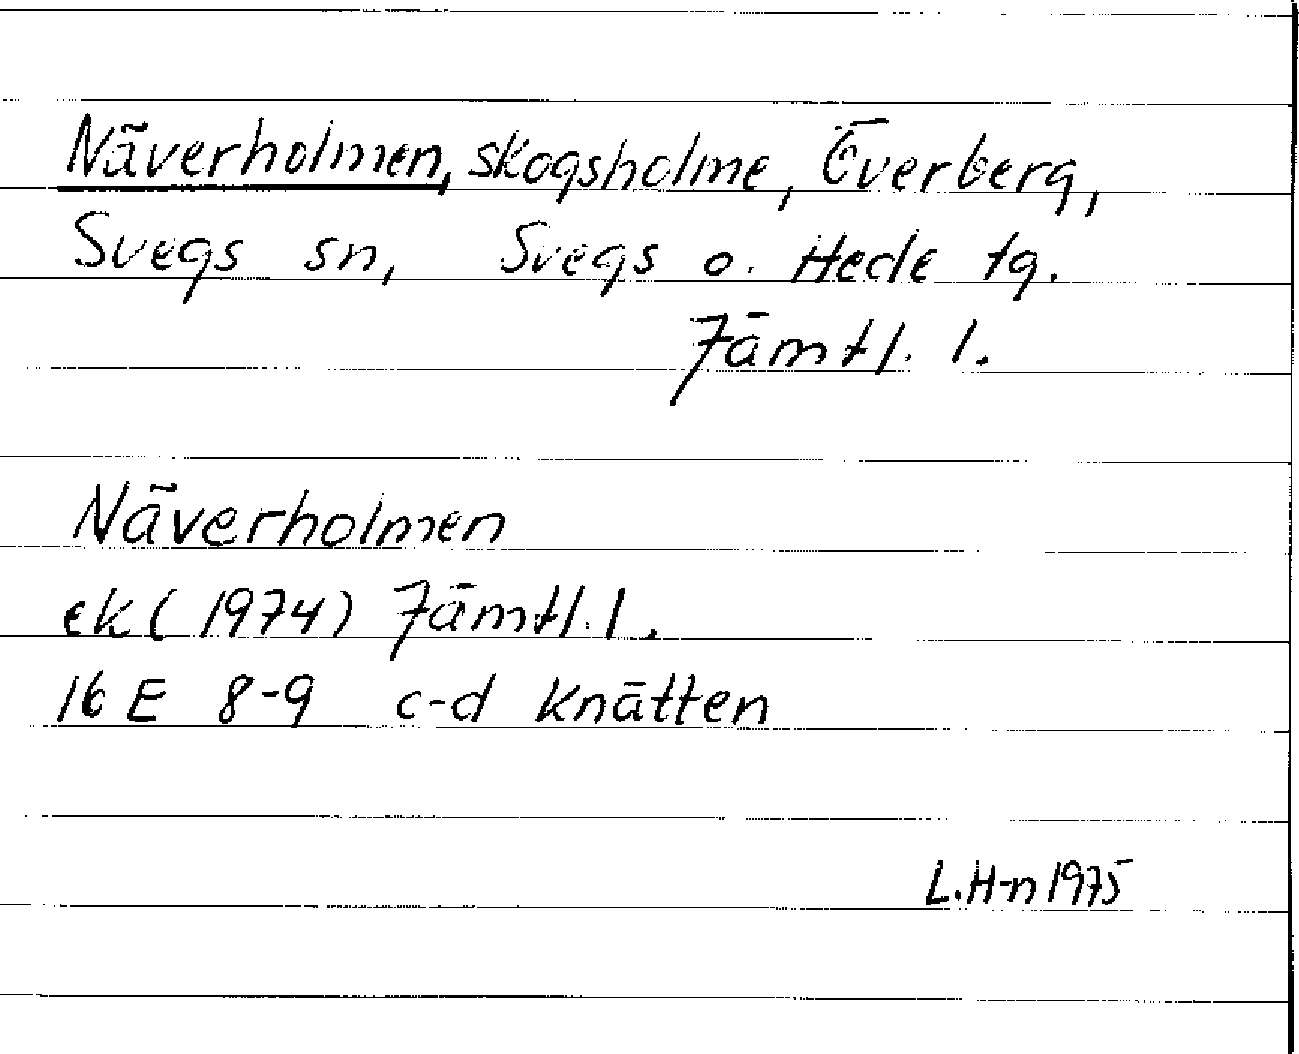 Näverholmen, skogsholme, Överberg,
Svegs sn, Svegs o. Hede tg.
Jämtl. l.
Näverholmen
ek (1974) Jämtl. l.
16 E 8-9 c-d Knätten
L.H-n 1975